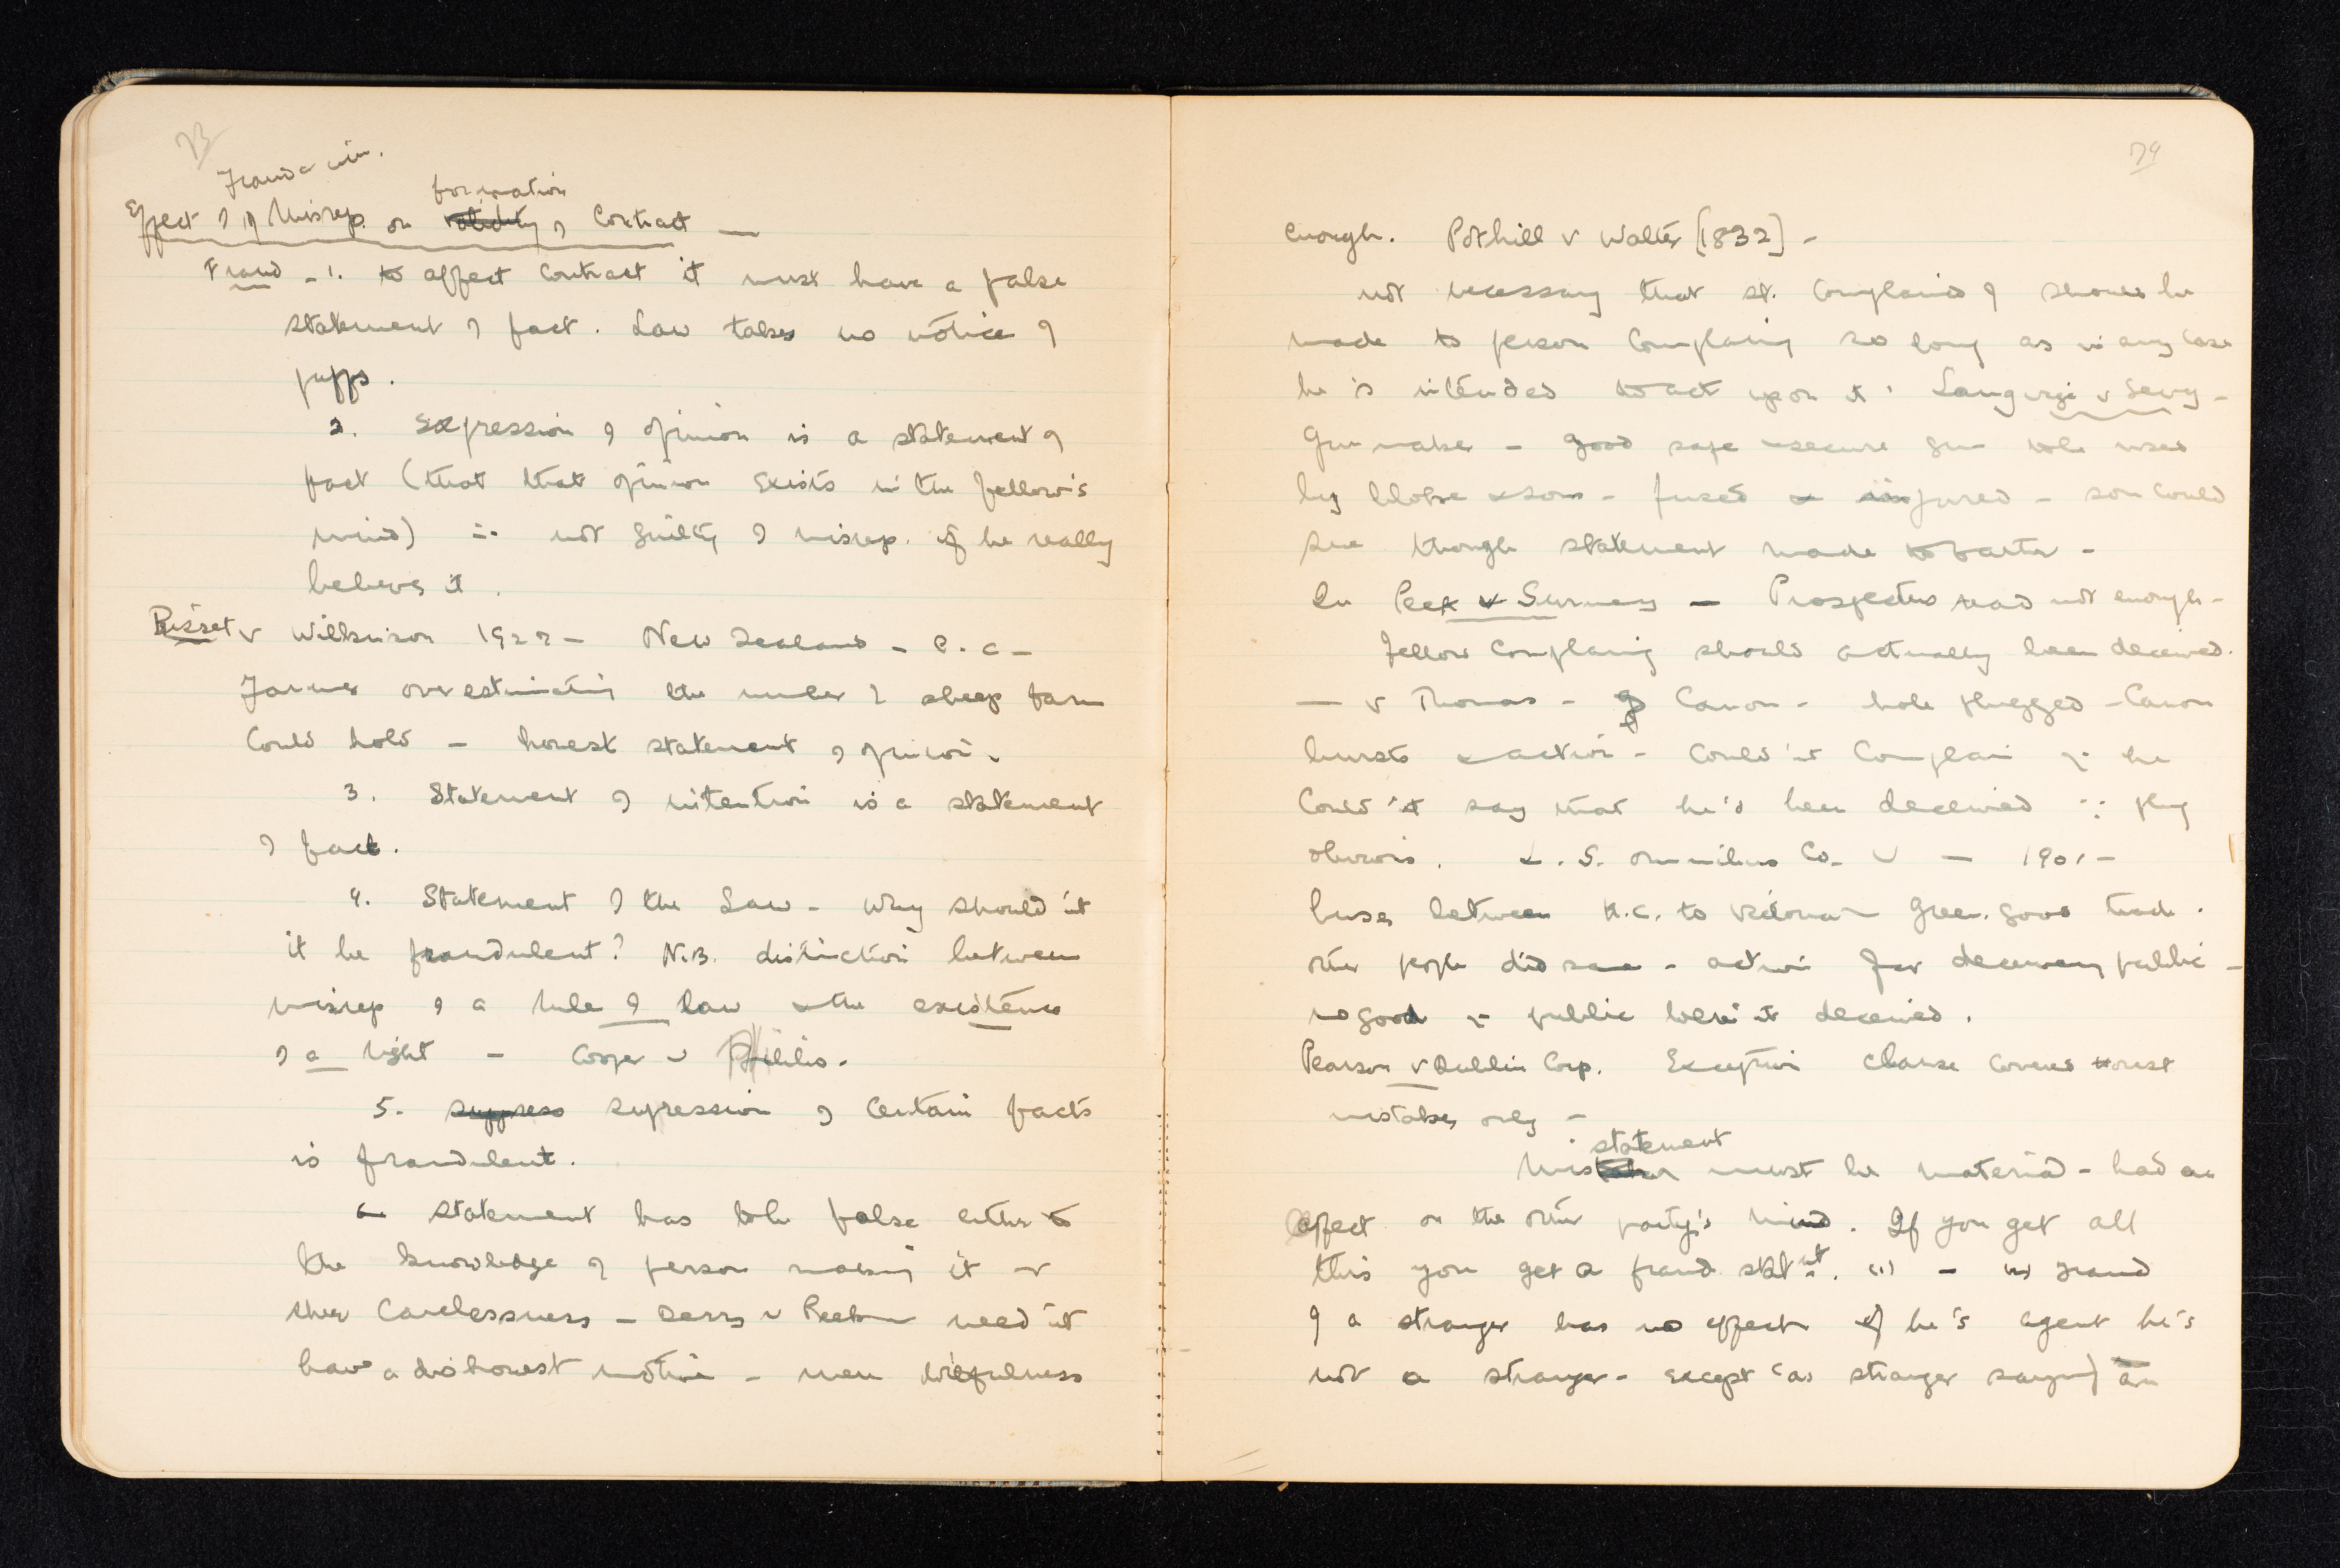 73
Fraud or inn.
formation
Effect of Misrep. on validity of Contract —
Fraud - 1. to affect contract it must have a false
statement of fact. Law takes no notice of
puffs.
2. Expression of opinion is a statement of
fact (that that opinion exists in the fellow's
mind) ∴ not guilty of misrep. if he really
believes it.
Bisset v Wilkinson 1927 - New Zealand - P.C. -
Farmer overestimating the number of sheep farm
could hold - honest statement of opinion.
3. Statement of intention is a statement
of fact.
4. Statement of the Law - Why should it
it be fraudulent? N.B. distinction between
misrep of a rule of law & the existence
of a right - Cooper v Phibbs.
5. suppress supression of certain facts
is fraudulent.
statement has to be false either to
the knowledge of person making it or
sheer carelessness - Derry v Peek need'nt
have a dishonest motive - mere wilfulness
74
enough. Polhill v Walter [1832] -
not necessary that st. complained of should be
made to person complaining so long as in any case
he is intended to act upon it. Langridge v Levy -
Gun maker - good safe & secure gun to be used
by bloke & son - fused & injured - son could
sue though statement made to Pater -
In Peek v Gurney - Prospectus read not enough -
fellow complaining should actually been deceived.
— v Thomas - Canon - hole plugged - Canon
bursts & action - Could'nt complain ∵ he
could'nt say that he'd been deceived ∵ plug
obvious. L.S. omnibus Co. v — 1901 -
buses between K.C. to Victoria Green. good trade.
other people did same - action for deceiving public -
no good ∵ public were'nt deceived.
Pearson v Dublin Corp. Exception clause covered honest
mistakes only -
statement
Mis must be material - had an
effect on the other party's mind. If you get all
this you get a fraud. statnt. (1) - (11) Fraud
of a stranger has no effect if he's agent he's
not a stranger - except (as stranger saying) an